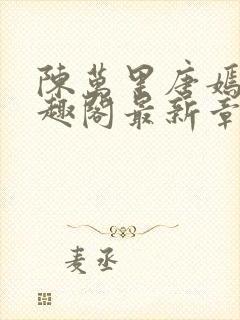 陳萬里唐嫣
趣閣最新章
麦丞